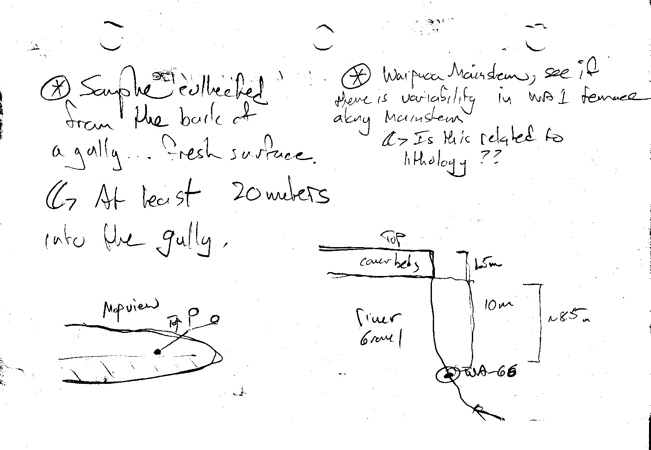 * Sample collected
from the back of
a gully... fresh surface.
↳ At least 20 meters
into the gully.
* Waipaoa Mainstem, see if
there is variability in WA1 terrace
along Mainstem
↳ Is this related to
lithology ??
Mapview
Top
Top
coverbeds
1.5m
10m
~8.5m
River
Gravel
WA-66